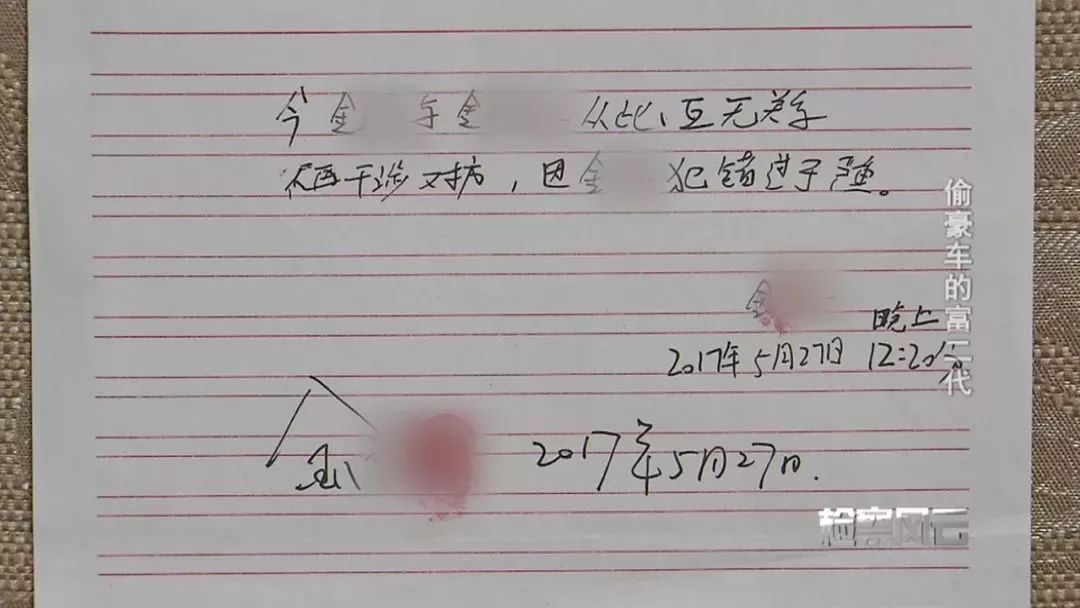 今金 与金 从此、互无关系
不再干涉对方，因金 犯错过于严重。
金
晚上
2017年5月27日 12:20分
金 2017年5月27日.
偷豪车的富二代
检察风云